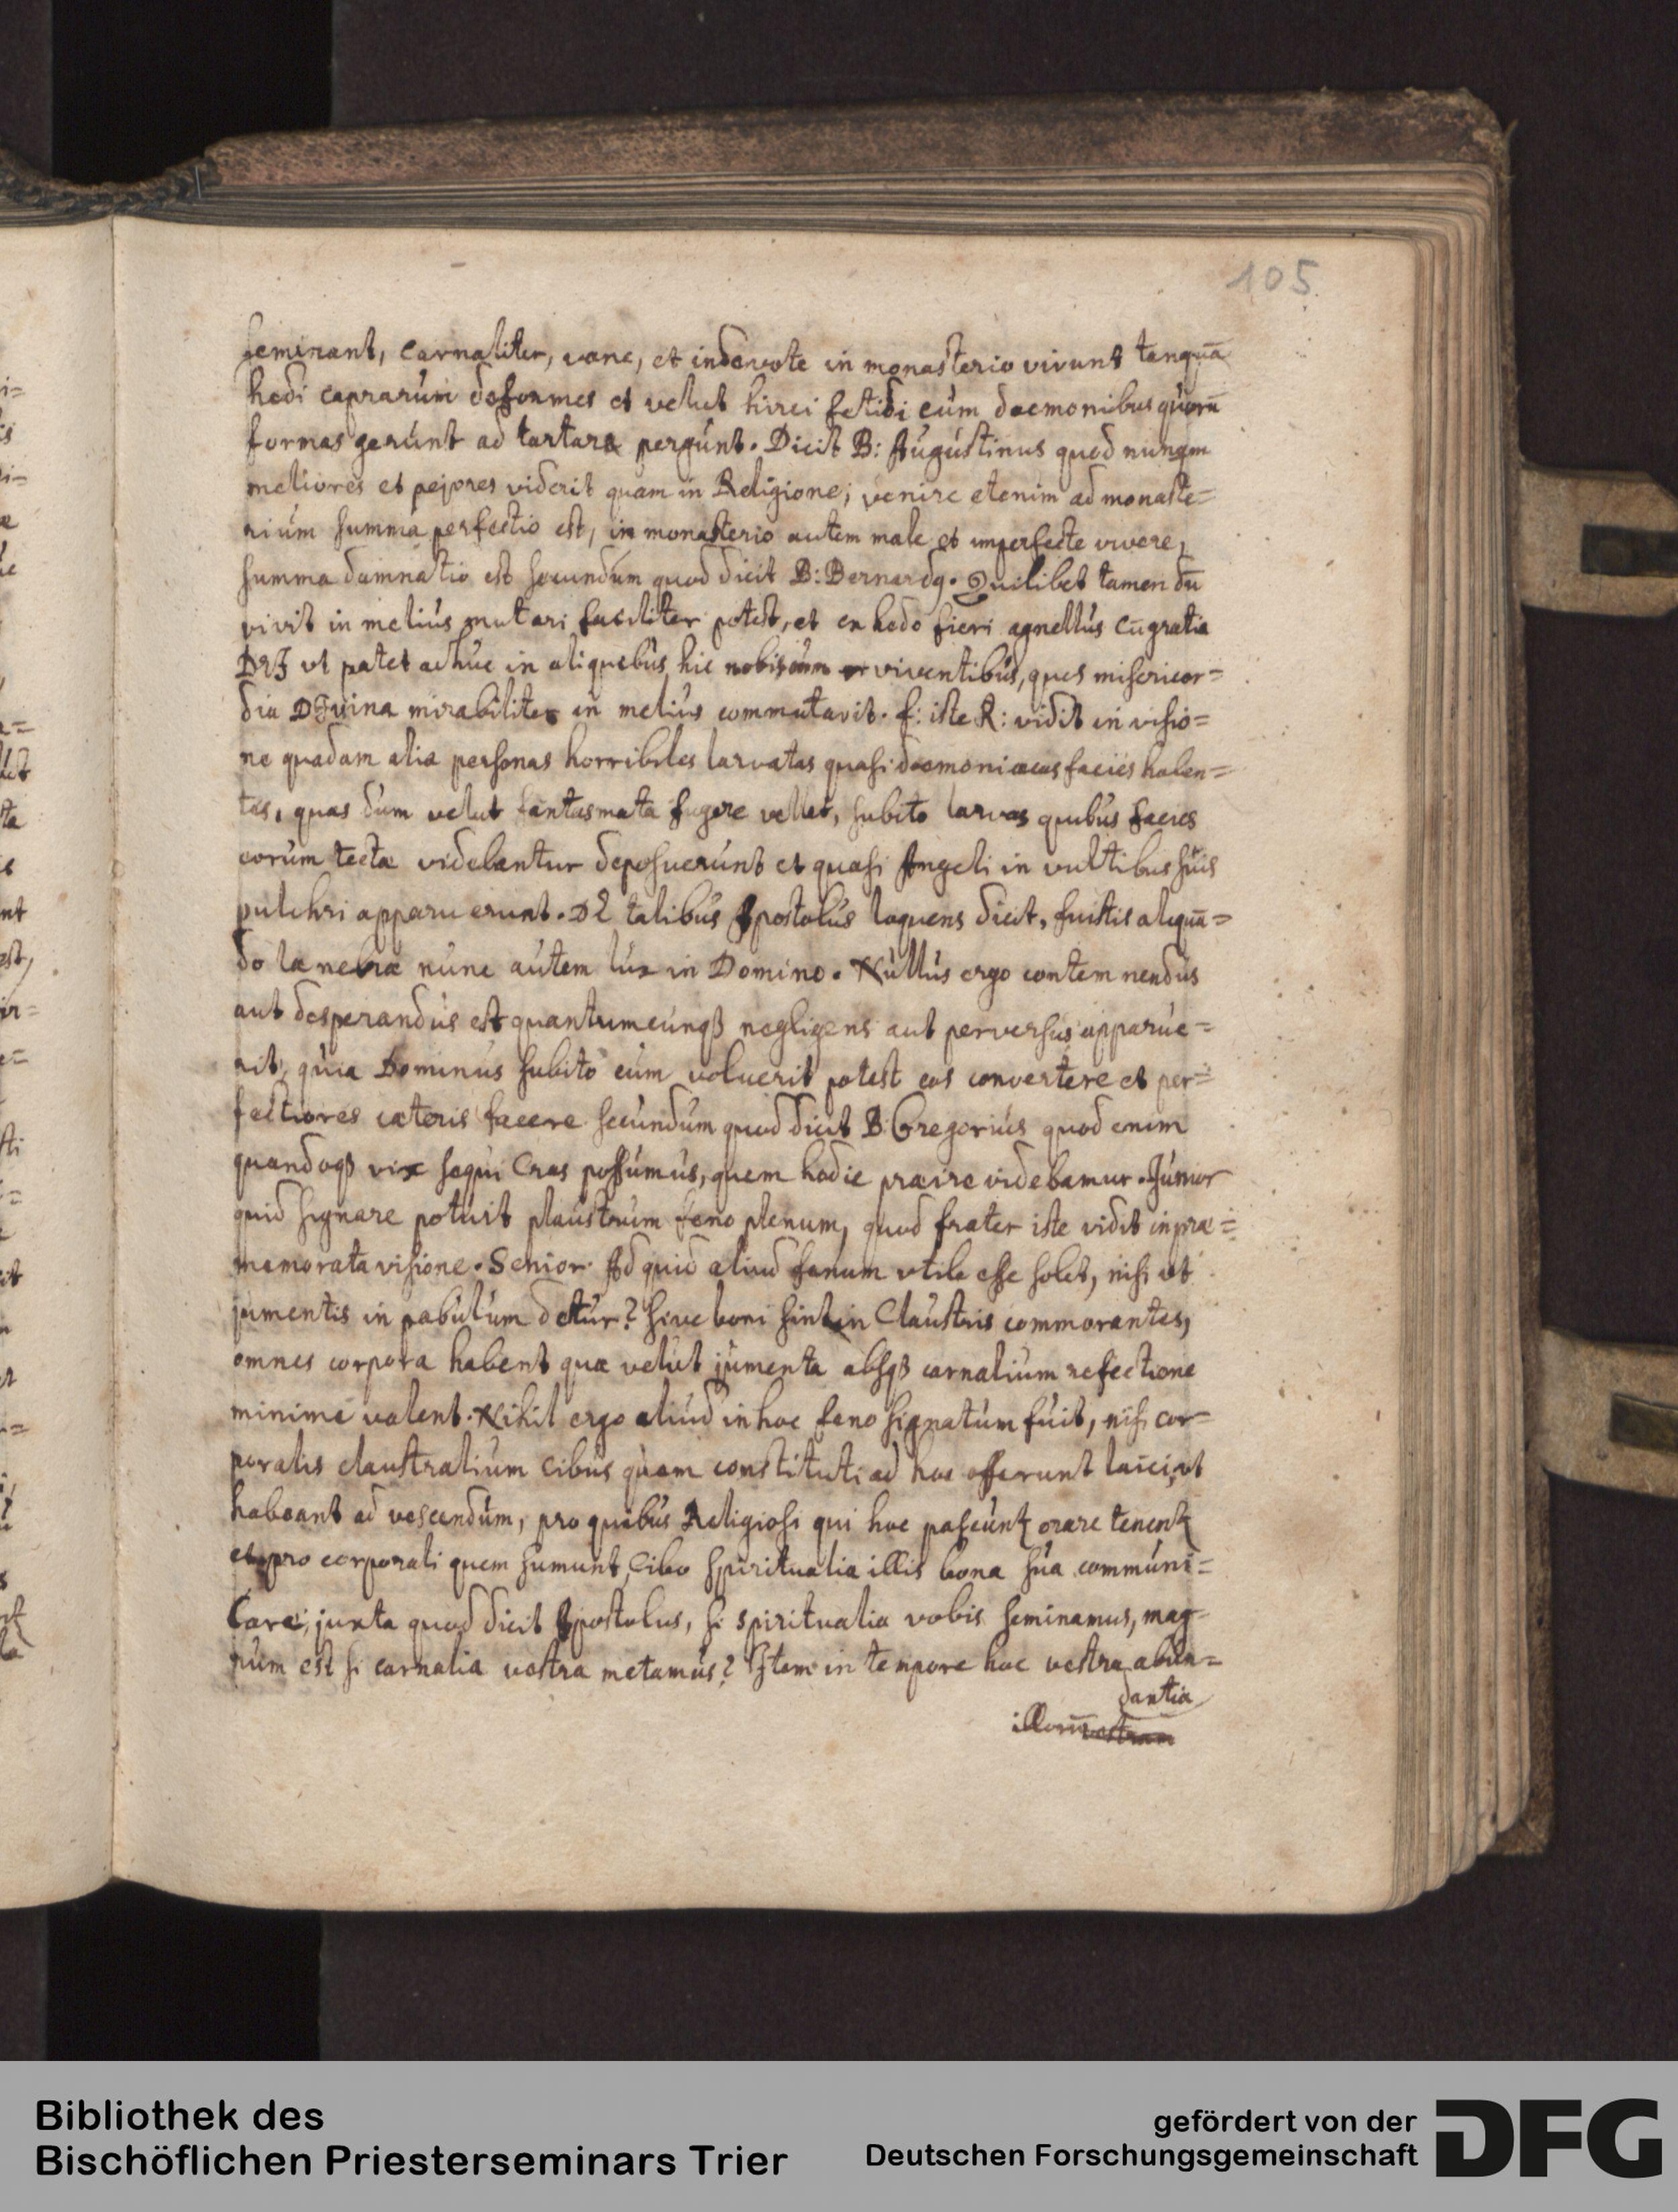 105.
seminant, carnaliter, vane, et indevote in monasterio vivunt tanquā
hedi caprarum deformes et velut hirci fetidi cum daemonibus quorū
formas gerunt ad tartara pergunt. Dicit B: Augustinus quod nunqm
meliores et pejores viderit quam in Religione; venire etenim ad monaste=
rium summa perfectio est, in monasterio autem male et imperfecte vivere,
summa damnatio est secundum quod dicit B: Bernardq. Quilibet tamen dū
vivit in melius mutari faciliter potest, et ex hedo fieri agnellus cū gratia
DEI ut patet adhuc in aliquibus hic nobiscum viventibus, quos misericor=
dia DIvina mirabiliter in melius commutavit. f: iste R: vidit in visio=
ne quadam alia personas horribiles larvatas quasi daemoniacas facies haben=
tes, quas dum velut fantasmata fugere vellet, subito larvas quibus facies
eorum tectae videbantur deposuerunt et quasi Angeli in vultibus suis
pulchri apparuerunt. DE talibus Apostolus loquens dicit, fuistis aliquā=
do taenebrae nunc autem lux in Domino. Nullus ergo contemnendus
aut desperandus est quantumcunqß negligens aut perversus apparue=
rit, quia Dominus subito cum voluerit potest eos convertere et per=
fectiores caeteris facere secundum quod dicit B: Gregorius quod enim
quandoqß vix sequi Cras possumus, quem hodie praeire videbamur. Junior
quid signare potuit plaustrum feno plenum, quod frater iste vidit in prae=
memorata visione. Senior. Ad quid aliud fenum utile esse solet, nisi ut
jumentis in pabulum detur? Sive boni sint in Claustris commorantes,
omnes corpora habent quae velut jumenta absqß carnalium refectione
minime valent. Nihil ergo aliud in hoc feno signatum fuit, nisi cor=
poralis claustralium cibus quem constituti ad hoc offerunt laici, ut
habeant ad vescendum, pro quibus Religiosi qui hoc pascunt orare tenent
et pro corporali quem sumunt, Cibo spiritualia illis bona sua communi=
Care, juxta quod dicit Apostolus, si spiritualia vobis seminamus, mag=
num est si carnalia vestra metamus? Item in tempore hoc vestra abun=
dantia
illorū vestram
Bibliothek des
Bischöflichen Priesterseminars Trier
gefördert von der
Deutschen Forschungsgemeinschaft
DFG